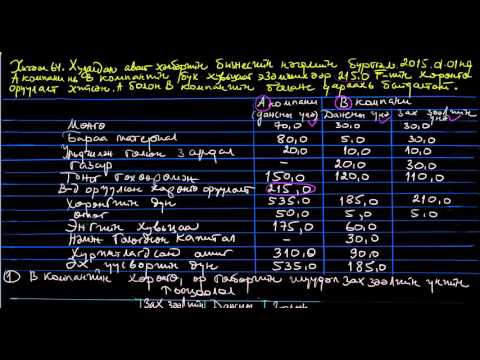 Хичээл 64. Худалдан авалт хэлбэрийн бизнесийн нэгдлийн бүртгэл. 2015.01.01нд
А компани нь В компанийн бүх хувьцааг эзэмшихээр 215.0 ₮-ийн хөрөнгө
оруулалт хийсэн. А болон В компанийн баланс дараахь байдалтай.
А компани В компани
(дансны үнэ) Дансны үнэ Зах зээлийн үнэ
Мөнгө 70,0 30,0 30,0
Бараа материал 80,0 5.0 30,0
Урьдчилж төлсөн зардал 20,0 10,0 10,0
Газар – 20,0 30,0
Тоног төхөөрөмж 150,0 120,0 110,0
В-д оруулсан хөрөнгө оруулалт 215,0
Хөрөнгийн дүн 535,0 185,0 210,0
Өглөг 50,0 5,0 5.0
Энгийн хувьцаа 175,0 60,0
Нэмж төлөгдсөн капитал – 30,0
Хуримтлагдсан ашиг 310,0 90,0
Эх үүсвэрийн дүн 535,0 185,0
① В компанийн хөрөнгө, өр төлбөрийн шууд зах зээлийн үнийн
тооцоолол
Зах зээлийн Дансны